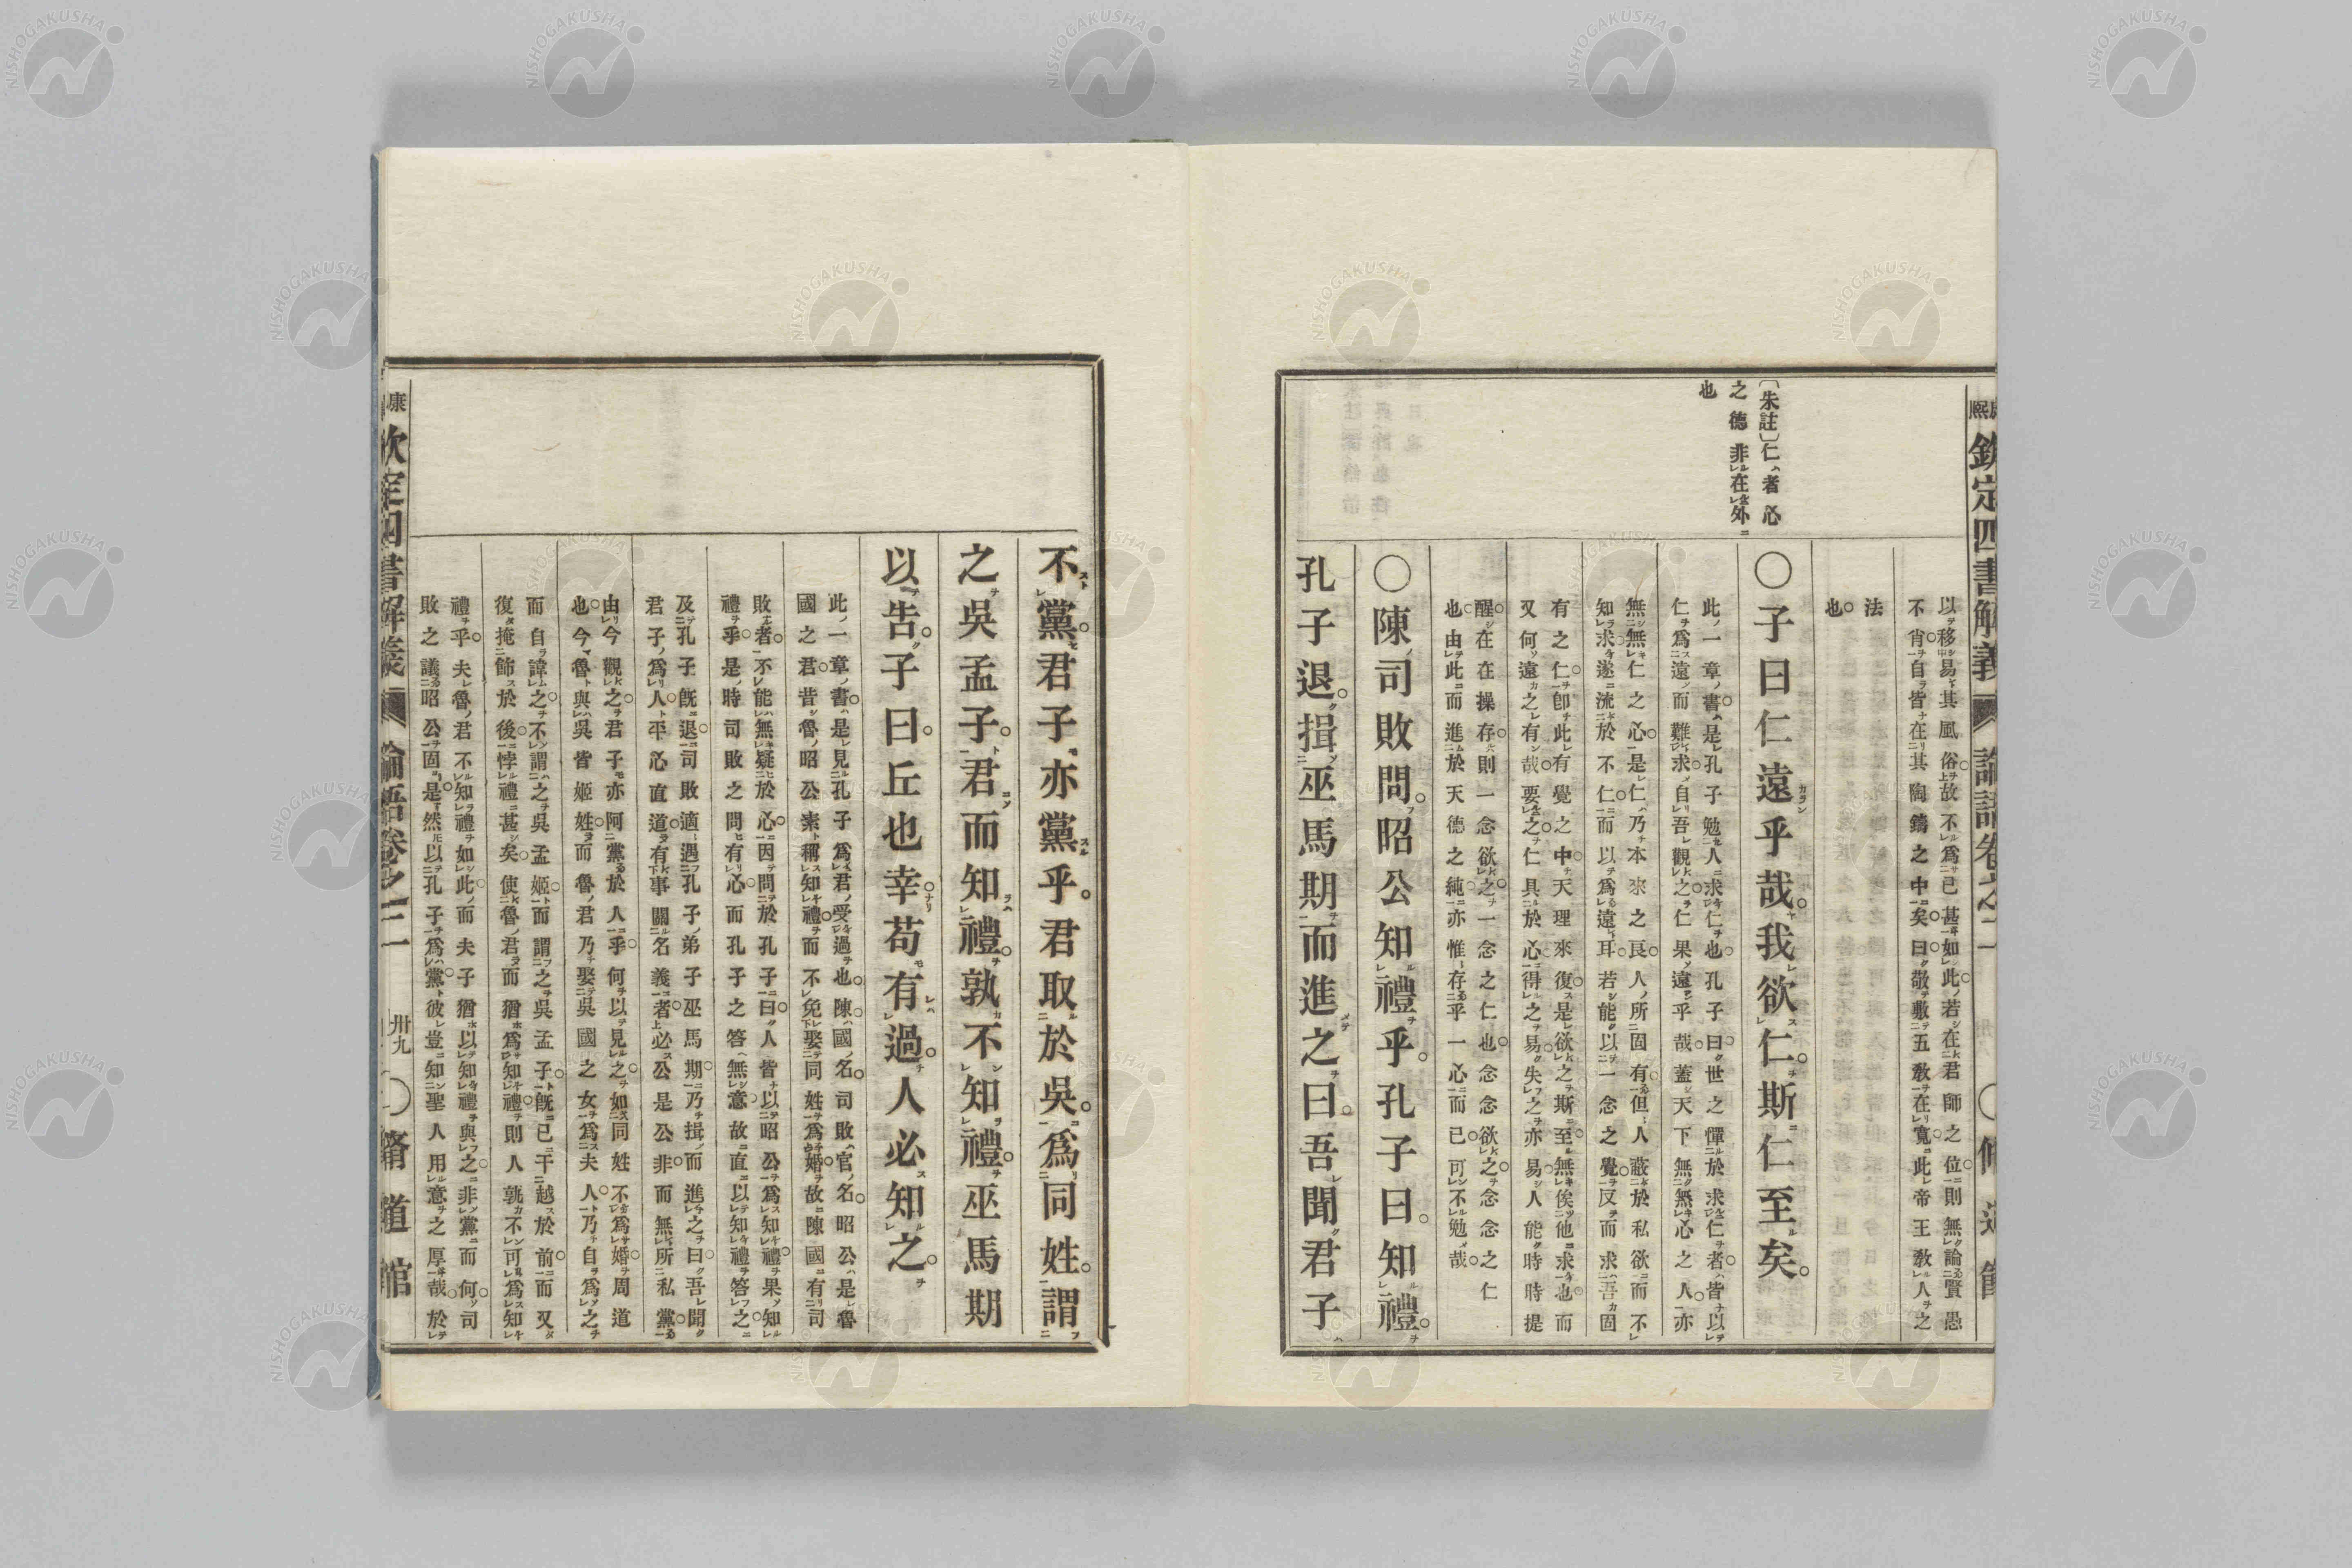 康熙
欽定四書解義
論語卷之二
脩道館
〔朱註〕仁者心
之德非在外
也
以移易其風俗故不爲已甚如此若在君師之位則無論賢愚
不肖自皆在其陶鑄之中矣曰敬敷五敎在寬此帝王敎人之
法
也
〇子曰仁遠乎哉我欲仁斯仁至矣
此一章書是孔子勉人求仁也孔子曰世之憚於求仁者皆以
仁爲遠而難求自吾觀之仁果遠乎哉蓋天下無無心之人亦
無無仁之心是仁乃本來之良人所固有但人蔽於私欲而不
知求遂流於不仁而以爲遠耳若能以一念之覺反而求吾固
有之仁卽此有覺之中天理來復是欲之斯至無俟他求也而
又何遠之有哉要之仁具於心得之易失之亦易人能時時提
醒在在操存則一念欲之一念之仁也念念欲之念念之仁
也由此而進於天德之純亦惟存乎一心而已可不勉哉
〇陳司敗問昭公知禮乎孔子曰知禮
孔子退揖巫馬期而進之曰吾聞君子
不黨君子亦黨乎君取於吳爲同姓謂
之吳孟子君而知禮孰不知禮巫馬期
以告子曰丘也幸苟有過人必知之
此一章書是見孔子爲君受過也陳國名司敗官名昭公是魯
國之君昔魯昭公素稱知禮而不免娶同姓爲婚故陳國有司
敗者不能無疑於心因問於孔子曰人皆以昭公爲知禮果知
禮乎是時司敗之問有心而孔子之答無意故直以知禮答之
及孔子旣退司敗適遇孔子弟子巫馬期乃揖而進之曰吾聞
君子爲人平心直道有事關名義者必公是公非而無所私黨
由今觀之君子亦阿黨於人乎何以見之如同姓不爲婚周道
也今魯與吳皆姬姓而魯君乃娶吳國之女爲夫人乃自爲之
而自諱之不謂之吳孟姬而謂之吳孟子旣已干越於前而又
復掩飾於後悖禮甚矣使魯君而猶爲知禮則人孰不可爲知
禮乎夫魯君不知禮如此而夫子猶以知禮與之非黨而何司
敗之議昭公固是然以孔子爲黨彼豈知聖人用意之厚哉於
康
欽定四書解義
論語卷之二
卅九
〇脩道館